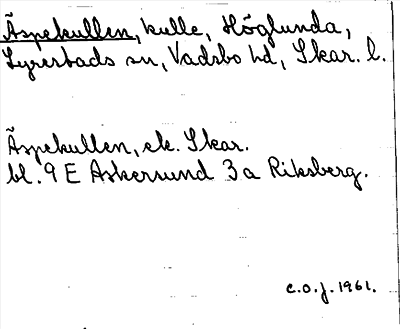 Äspekullen, kulle, Höglunda,
Lyrestads sn, Vadsbo hd, Skar. l.
Äspekullen, ek. Skar.
bl. 9 E Askersund 3a Riksberg.
C.O.J. 1961.